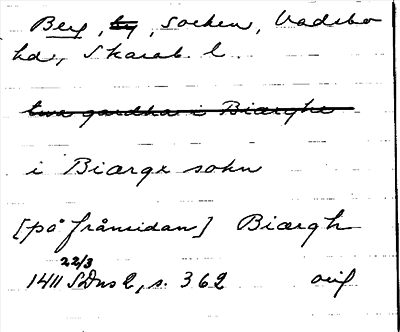 Berg, by, socken, Vadsbo
hd, Skarab. l.
twa gardha i Biærghe
i Biærgx sokn
[på frånsidan] Biærgh
22/3
1411 SDns 2, s. 362 orig